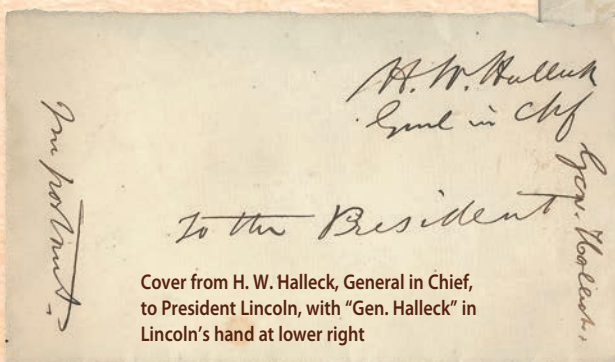 H. W. Halleck
Genl in Chf
To the President
Important.
Gen. Halleck.
Cover from H. W. Halleck, General in Chief,
to President Lincoln, with “Gen. Halleck” in
Lincoln’s hand at lower right